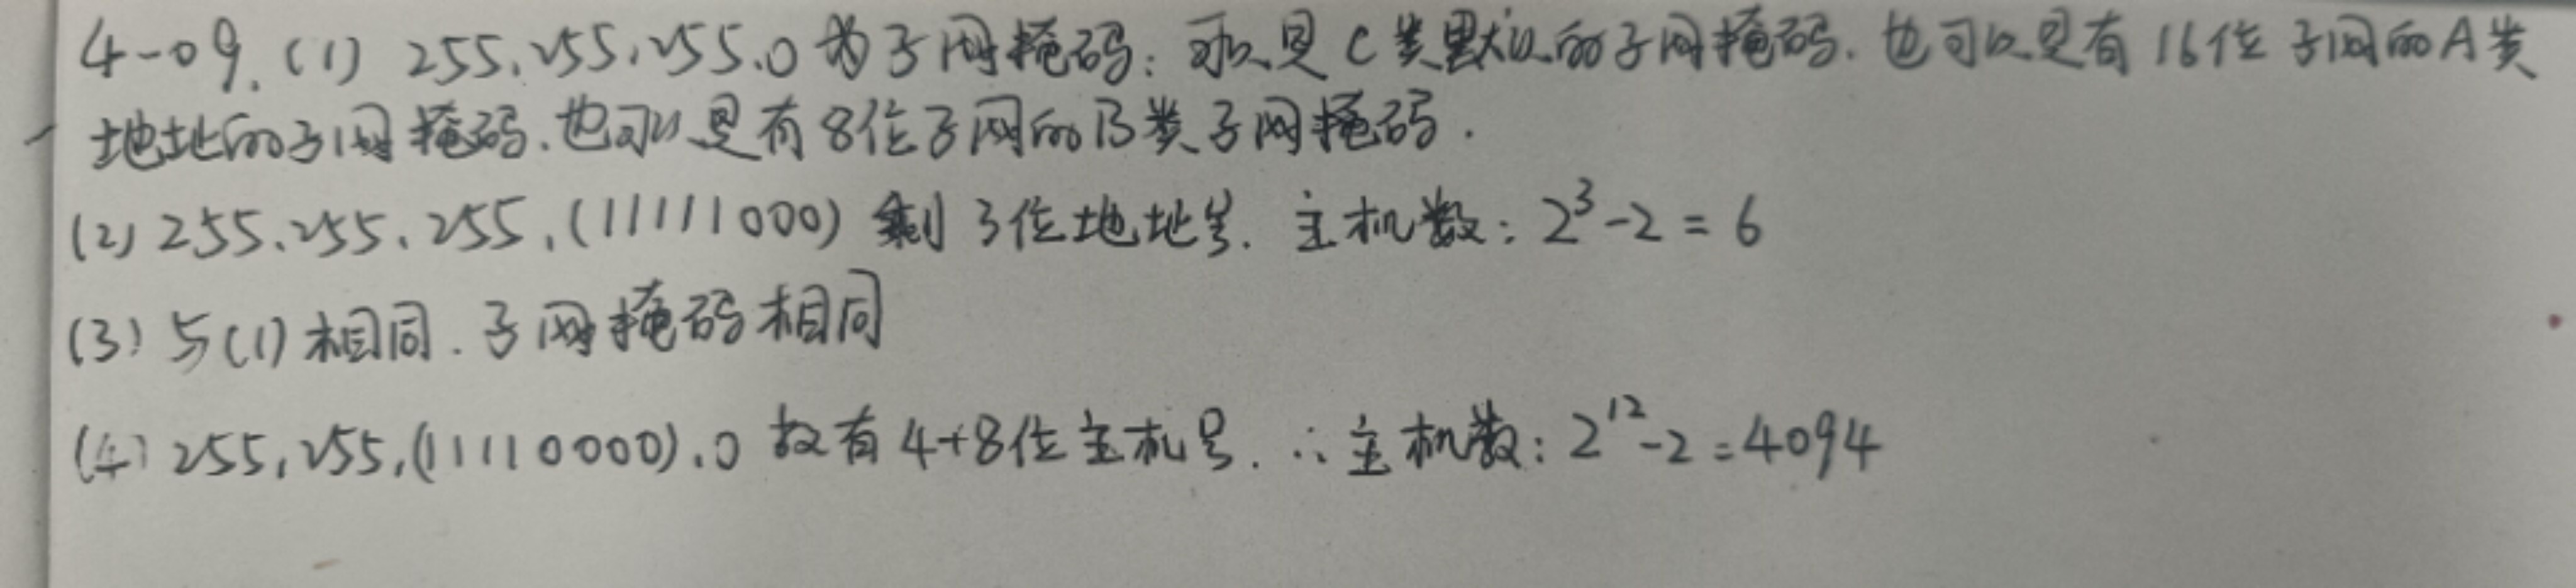 4-09. (1) 255.255.255.0 为子网掩码: 可以是C类默认的子网掩码. 也可以是有16位子网的A类
地址的子网掩码. 也可以是有8位子网的B类子网掩码.
(2) 255.255.255.(11111000) 剩3位地址号. 主机数: 2³-2=6
(3) 与(1)相同. 子网掩码相同
(4) 255.255.(11110000).0 故有4+8位主机号. ∴主机数: 2¹²-2=4094